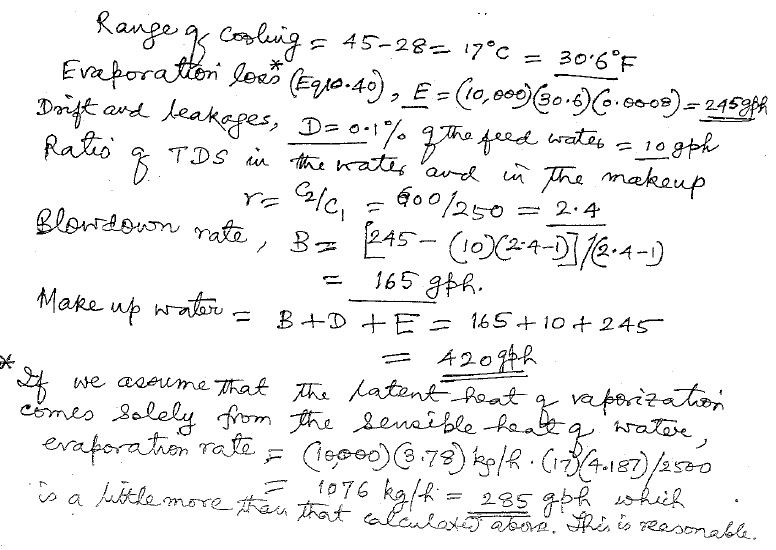 Range of cooling = 45-28 = 17°C = 30.6°F
Evaporation loss* (Eq 10.40), E = (10,000)(30.6)(0.0008) = 245 gph
Drift and leakages, D = 0.1% of the feed water = 10 gph
Ratio of TDS in the water and in the makeup
r = C2/C1 = 600/250 = 2.4
Blowdown rate, B = [245 - (10)(2.4-1)]/(2.4-1)
= 165 gph.
Make up water = B+D+E = 165+10+245
= 420 gph
* If we assume that the latent heat of vaporization
comes solely from the sensible heat of water,
evaporation rate = (10,000)(3.78) kg/h . (17)(4.187)/2500
= 1076 kg/h = 285 gph which
is a little more than that calculated above. This is reasonable.